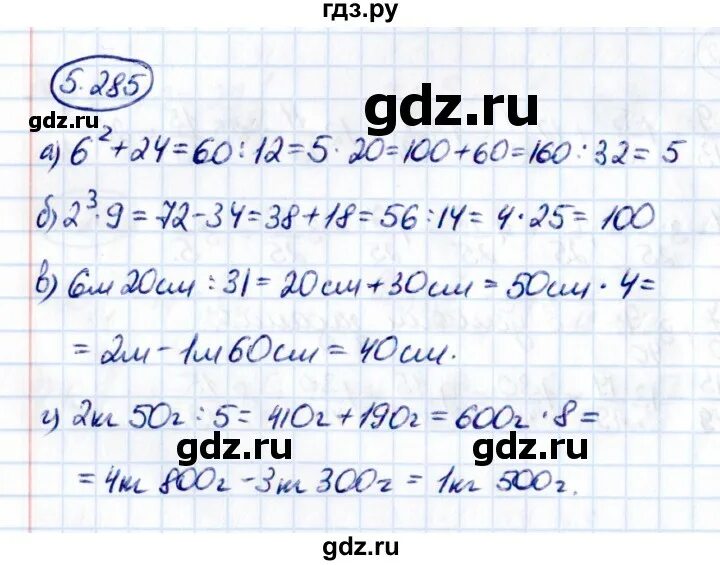 гдз.ру
5.285
gdz.ru
gdz.ru
а) 6² + 24 = 60 : 12 = 5 · 20 = 100 + 60 = 160 : 32 = 5
б) 2³ · 9 = 72 - 34 = 38 + 18 = 56 : 14 = 4 · 25 = 100
в) 6м 20см : 31 = 20см + 30см = 50см · 4 =
= 2м - 1м 60см = 40см.
г) 2кг 50г : 5 = 410г + 190г = 600г · 8 =
gdz.ru
gdz.ru
= 4кг 800г - 3кг 300г = 1кг 500г.
gdz.ru